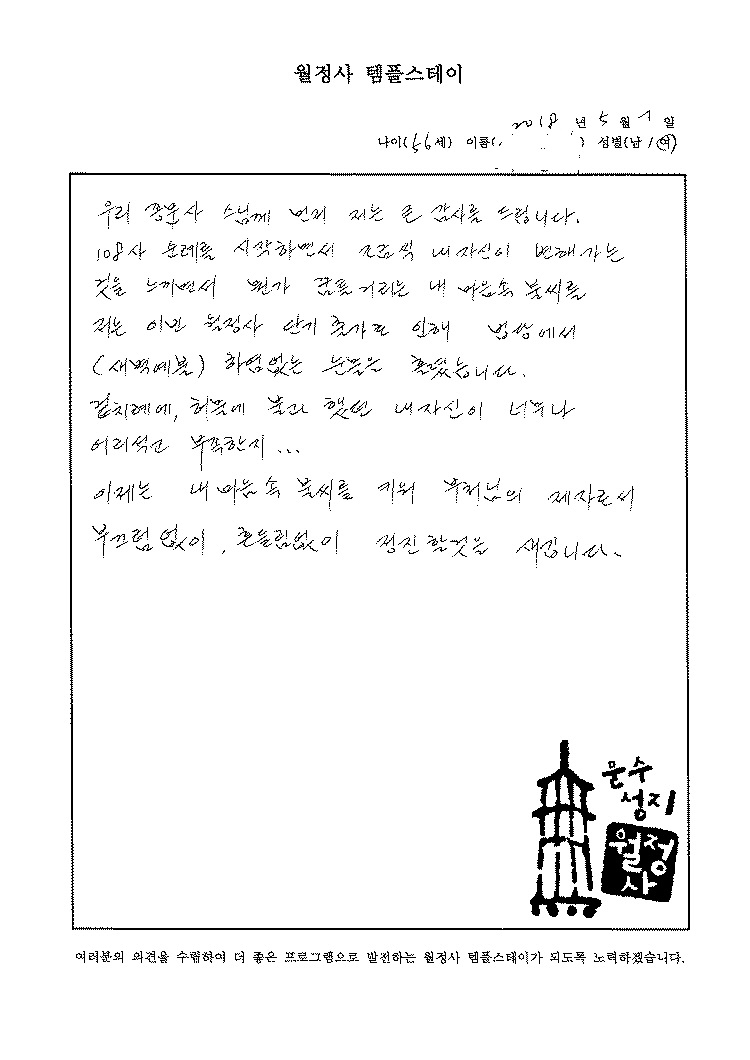 월정사 템플스테이
2018 년 5 월 7 일
나이(56세) 이름( ) 성별(남/여)
우리 스님께 먼저 저는 큰 감사를 드립니다.
108사 순례를 시작하면서 조금씩 내자신이 변해가는
것을 느끼면서 뭔가 꿈틀거리는 내 마음속 불씨를
저는 이번 월정사 단기 출가로 인해 법당에서
(새벽예불) 하염없는 눈물은 흘렸습니다.
겉치레에, 허물에 불과 했던 내자신이 너무나
어리석고 부족한지...
이제는 내 마음 속 불씨를 키워 부처님의 제자로서
부끄럼 없이, 흔들림없이 정진할것을 새깁니다.
문수
성지
월정
사
여러분의 의견을 수렴하여 더 좋은 프로그램으로 발전하는 월정사 템플스테이가 되도록 노력하겠습니다.